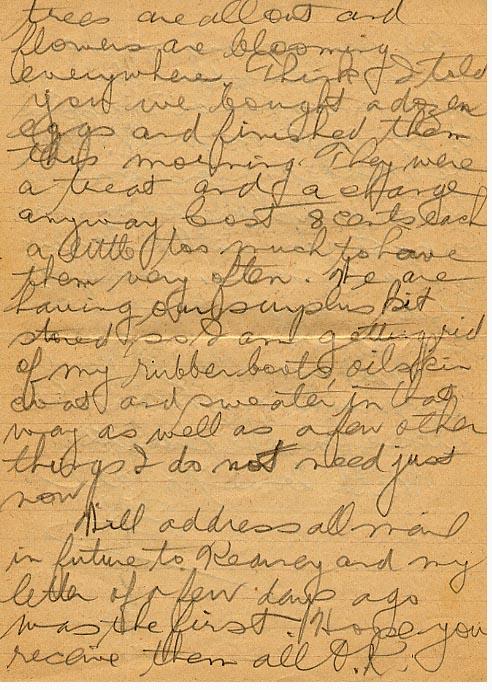 trees are all out and
flowers are blooming
everywhere. Think I told
you we bought a dozen
eggs and finished them
this morning. They were
a treat and a change
anyway Cost 8 cents each
a little too much to have
them very often. We are
having our surplus kit
stored so I am getting rid
of my rubber boots, oilskin
coat and sweater, in that
way as well as a few other
things I do not need just
now.
Will address all mail
in future to Kearney and my
letter of a few days ago
was the first. Hope you
receive them all O.K.